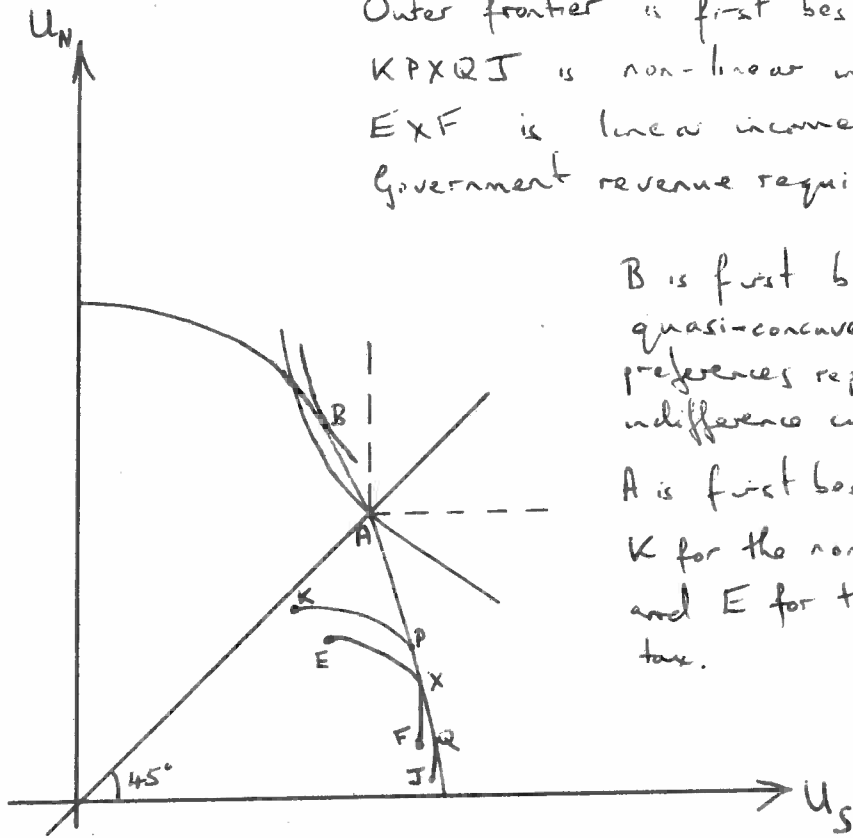 U_N
Outer frontier is first bes
KPXQJ is non-linear in
EXF is linear income
Government revenue requi
B is first b
quasi-concave
preferences rep
indifference cu
A is first bes
K for the non
and E for t
tax.
B
A
K
P
E
X
F
Q
J
45°
U_S